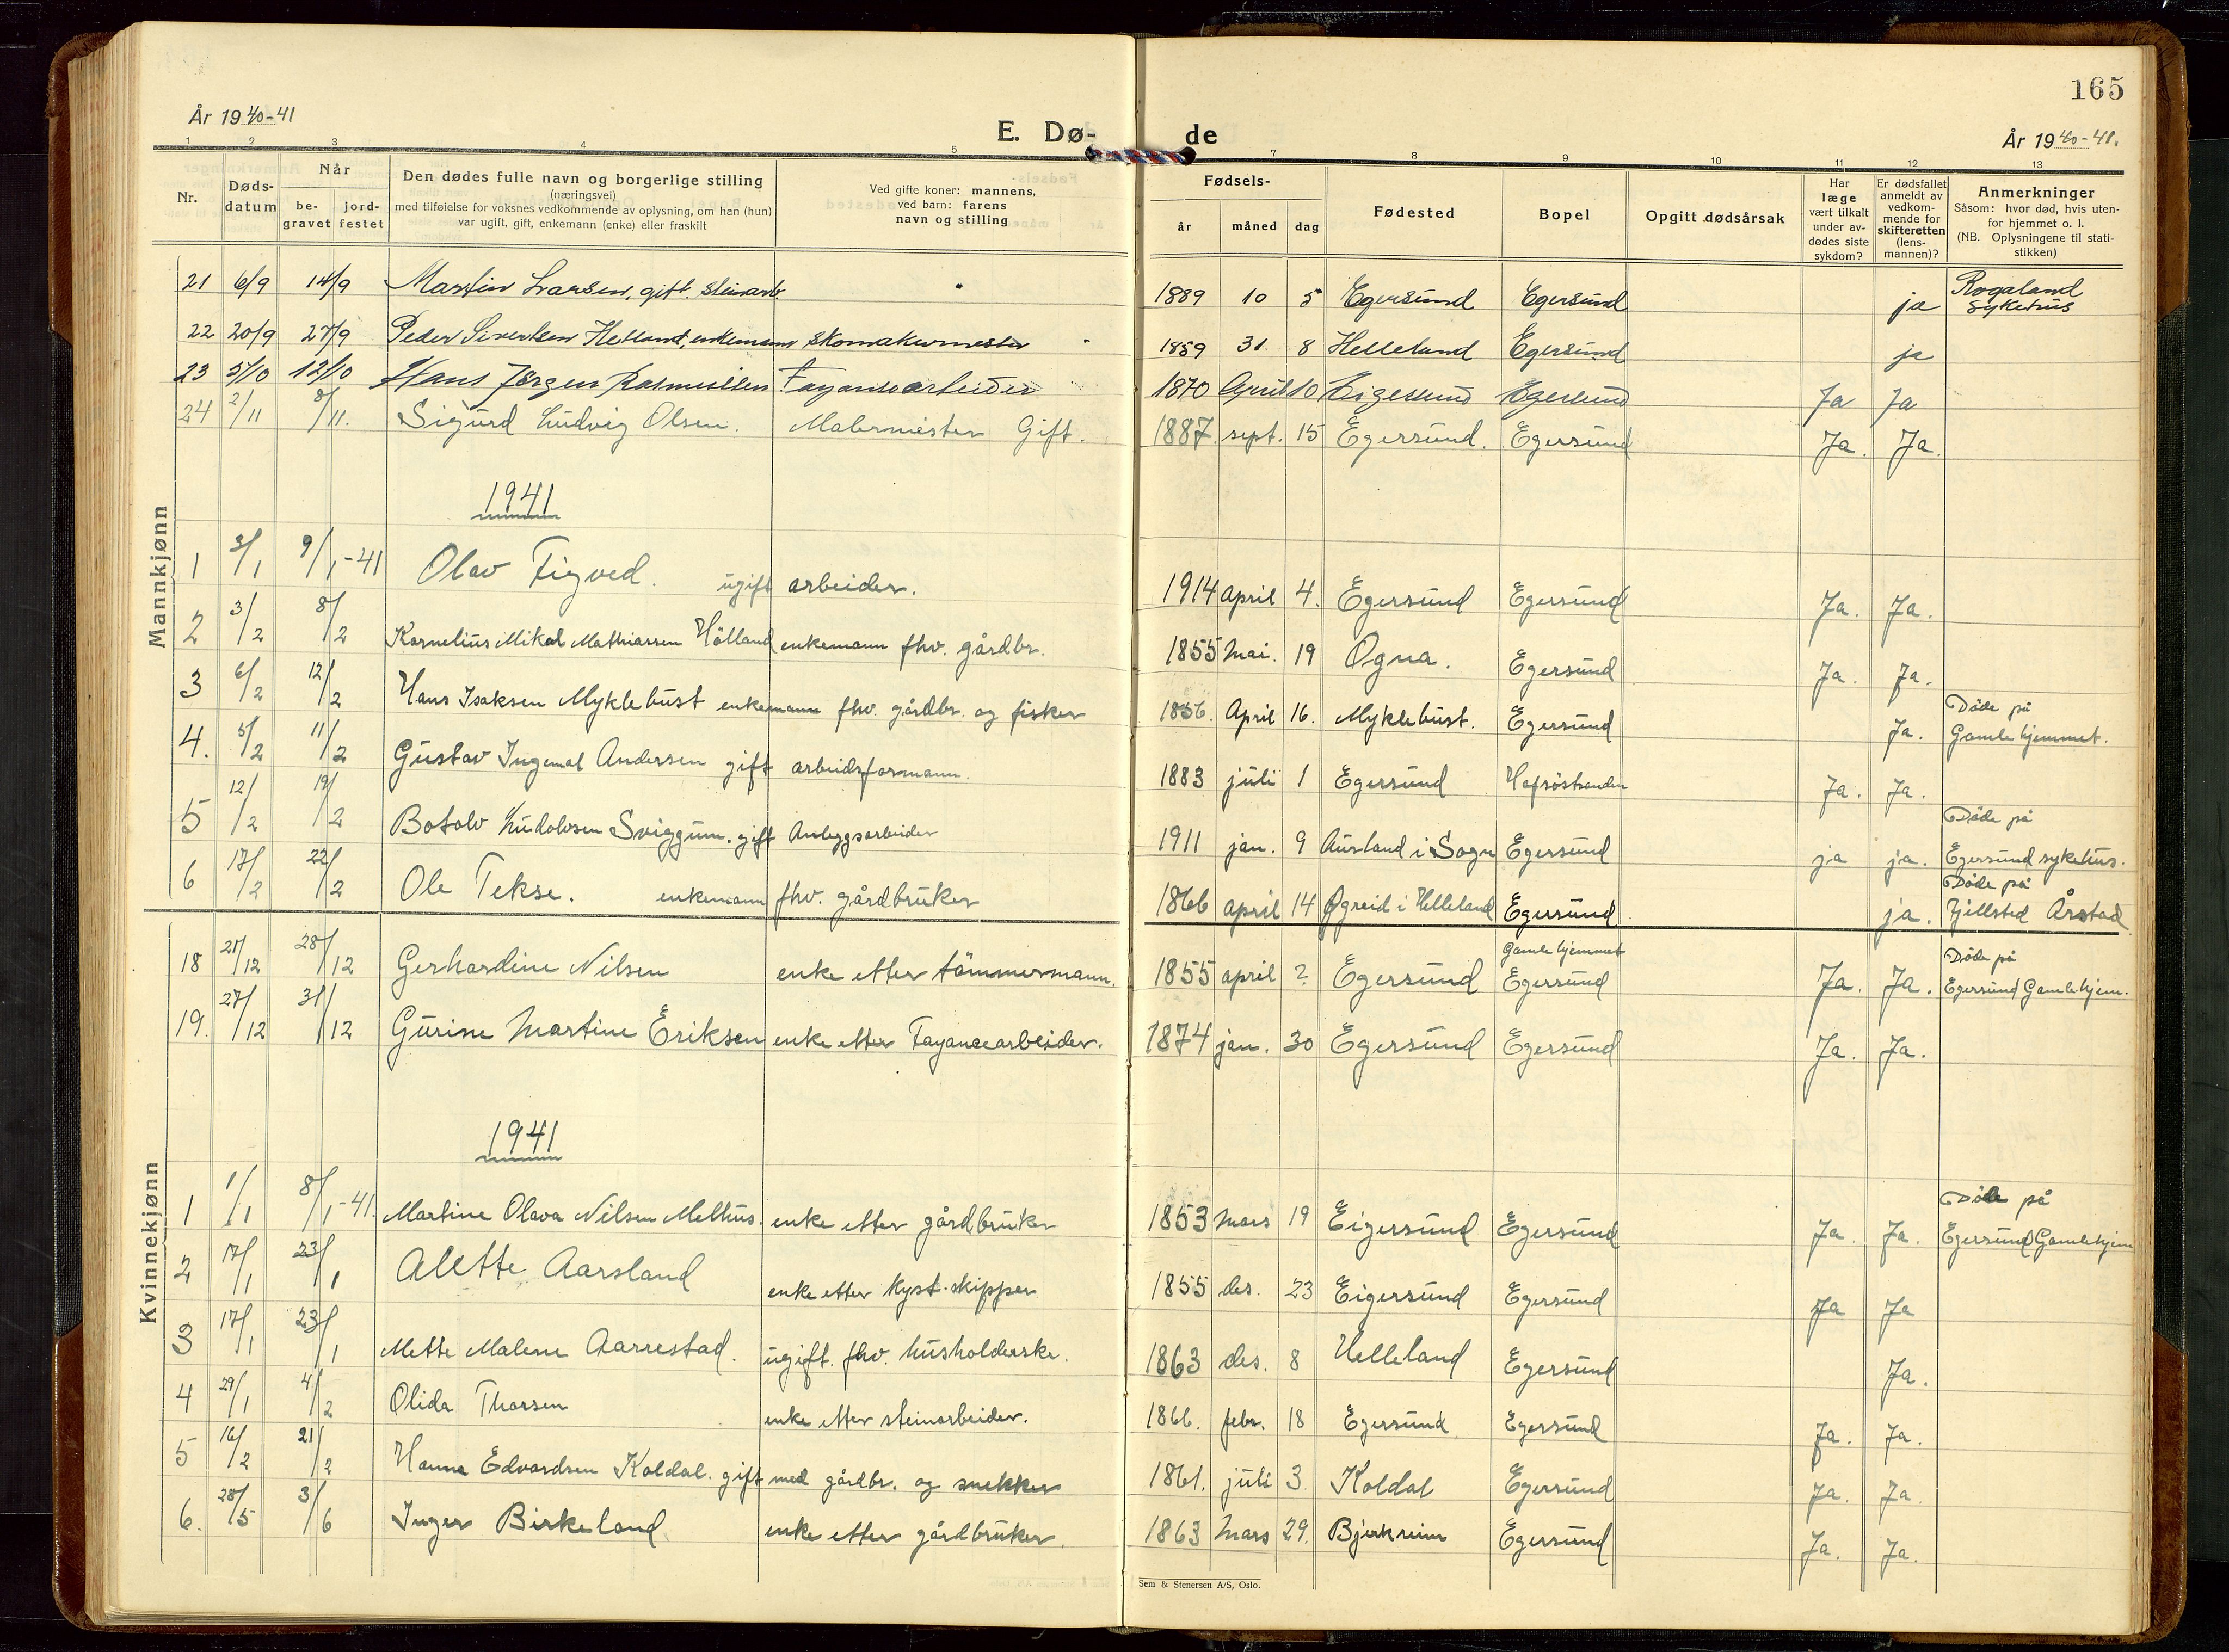 165
År 1940-41
E. Dø-
de
År 1940-41.
1 2 3 4 5 7 8 9 10 11 12 13
Nr.
Døds-
datum
Når
be-
gravet
jord-
festet
Den dødes fulle navn og borgerlige stilling
(næringsvei)
med tilføielse for voksnes vedkommende av oplysning, om han (hun)
var ugift, gift, enkemann (enke) eller fraskilt
Ved gifte koner: mannens,
ved barn: farens
navn og stilling
Fødsels-
år måned dag
Fødested
Bopel
Opgitt dødsårsak
Har
læge
vært tilkalt
under av-
dødes siste
sykdom?
Er dødsfallet
anmeldt av
vedkom-
mende for
skifteretten
(lens-
mannen)?
Anmerkninger
Såsom: hvor død, hvis uten-
for hjemmet o. l.
(NB. Oplysningene til stati-
stikken)
Mannkjønn
21 6/9 14/9 Martin Larsen, gift. steinarb. 1889 10 5 Egersund Egersund ja Rogaland
sykehus
22 20/9 27/9 Peder Sivertsen Helland, enkemann skomakermester 1859 31 8 Helleland Egersund ja
23 5/10 12/10 Hans Jørgen Rasmussen Fayansarbeider 1870 April 10 Eigersund Egersund Ja Ja
24 2/11 8/11. Sigurd Ludvig Olsen. Malermester Gift. 1887. sept. 15 Egersund. Egersund Ja. Ja.
1941
1 3/1 9/1-41 Olav Tigved. ugift arbeider. 1914 april 4. Egersund Egersund Ja. Ja.
2 3/2 8/2 Kornelius Mikal Mathiassen Hölland enkemann fhv. gårdbr. 1855 Mai. 19 Ogna. Egersund Ja. Ja.
3 6/2 12/2 Hans Isaksen Myklebust enkemann fhv. gårdbr. og fisker 1856. April 16. Myklebust. Egersund Ja. Döde på
Gamlehjemmet.
4. 5/2 11/2 Gustav Ingemal Andersen gift arbeidsformann. 1883 juli 1 Egersund Hafsöstranden Ja. Ja.
5 12/2 19/2 Botolv Ludolvsen Sviggum. gift Anleggsarbeider 1911 jan. 9 Aurland i Sogn Egersund ja ja. Döde på
Egersund sykehus.
6 17/2 22/2 Ole Tekse. enkemann fhv. gårdbruker 1866 april 14 Øgreid i Helleland Egersund ja. Döde på
Årstad
Kvinnekjønn
18 21/12 28/12 Gerhardine Nilsen enke etter tömmermann. 1855 april 2 Egersund Gamlehjemmet
Egersund Ja. Ja. Döde på
Egersund Gamlehjem.
19. 27/12 31/12 Gurine Martine Eriksen enke etter Fayancearbeider. 1874 jan. 30 Egersund Egersund Ja. Ja.
1941
1 1/1 8/1-41. Martine Olava Nilsen Melhus. enke etter gårdbruker 1853 mars 19 Eigersund Egersund Ja. Ja. Döde på
Egersund Gamlehjem
2 17/1 23/1 Alette Aarsland enke etter kyst-skipper 1855 des. 23 Eigersund Egersund Ja Ja
3 17/1 23/1 Mette Malene Aarrestad. ugift. fhv. husholderske. 1863 des. 8 Helleland Egersund Ja.
4 29/1 4/2 Olida Thorsen enke etter steinarbeider. 1866. febr. 18 Egersund Egersund Ja. Ja.
5 16/2 21/2 Hanna Edvardsen Koldal. gift med gårdbr. og snekker 1861. juli 3. Koldal Egersund Ja. Ja.
6. 28/5 3/6 Inger Birkeland enke etter gårdbruker. 1863 Mars 29. Bjerkreim Egersund Ja. Ja.
Sem & Stenersen A/S, Oslo.